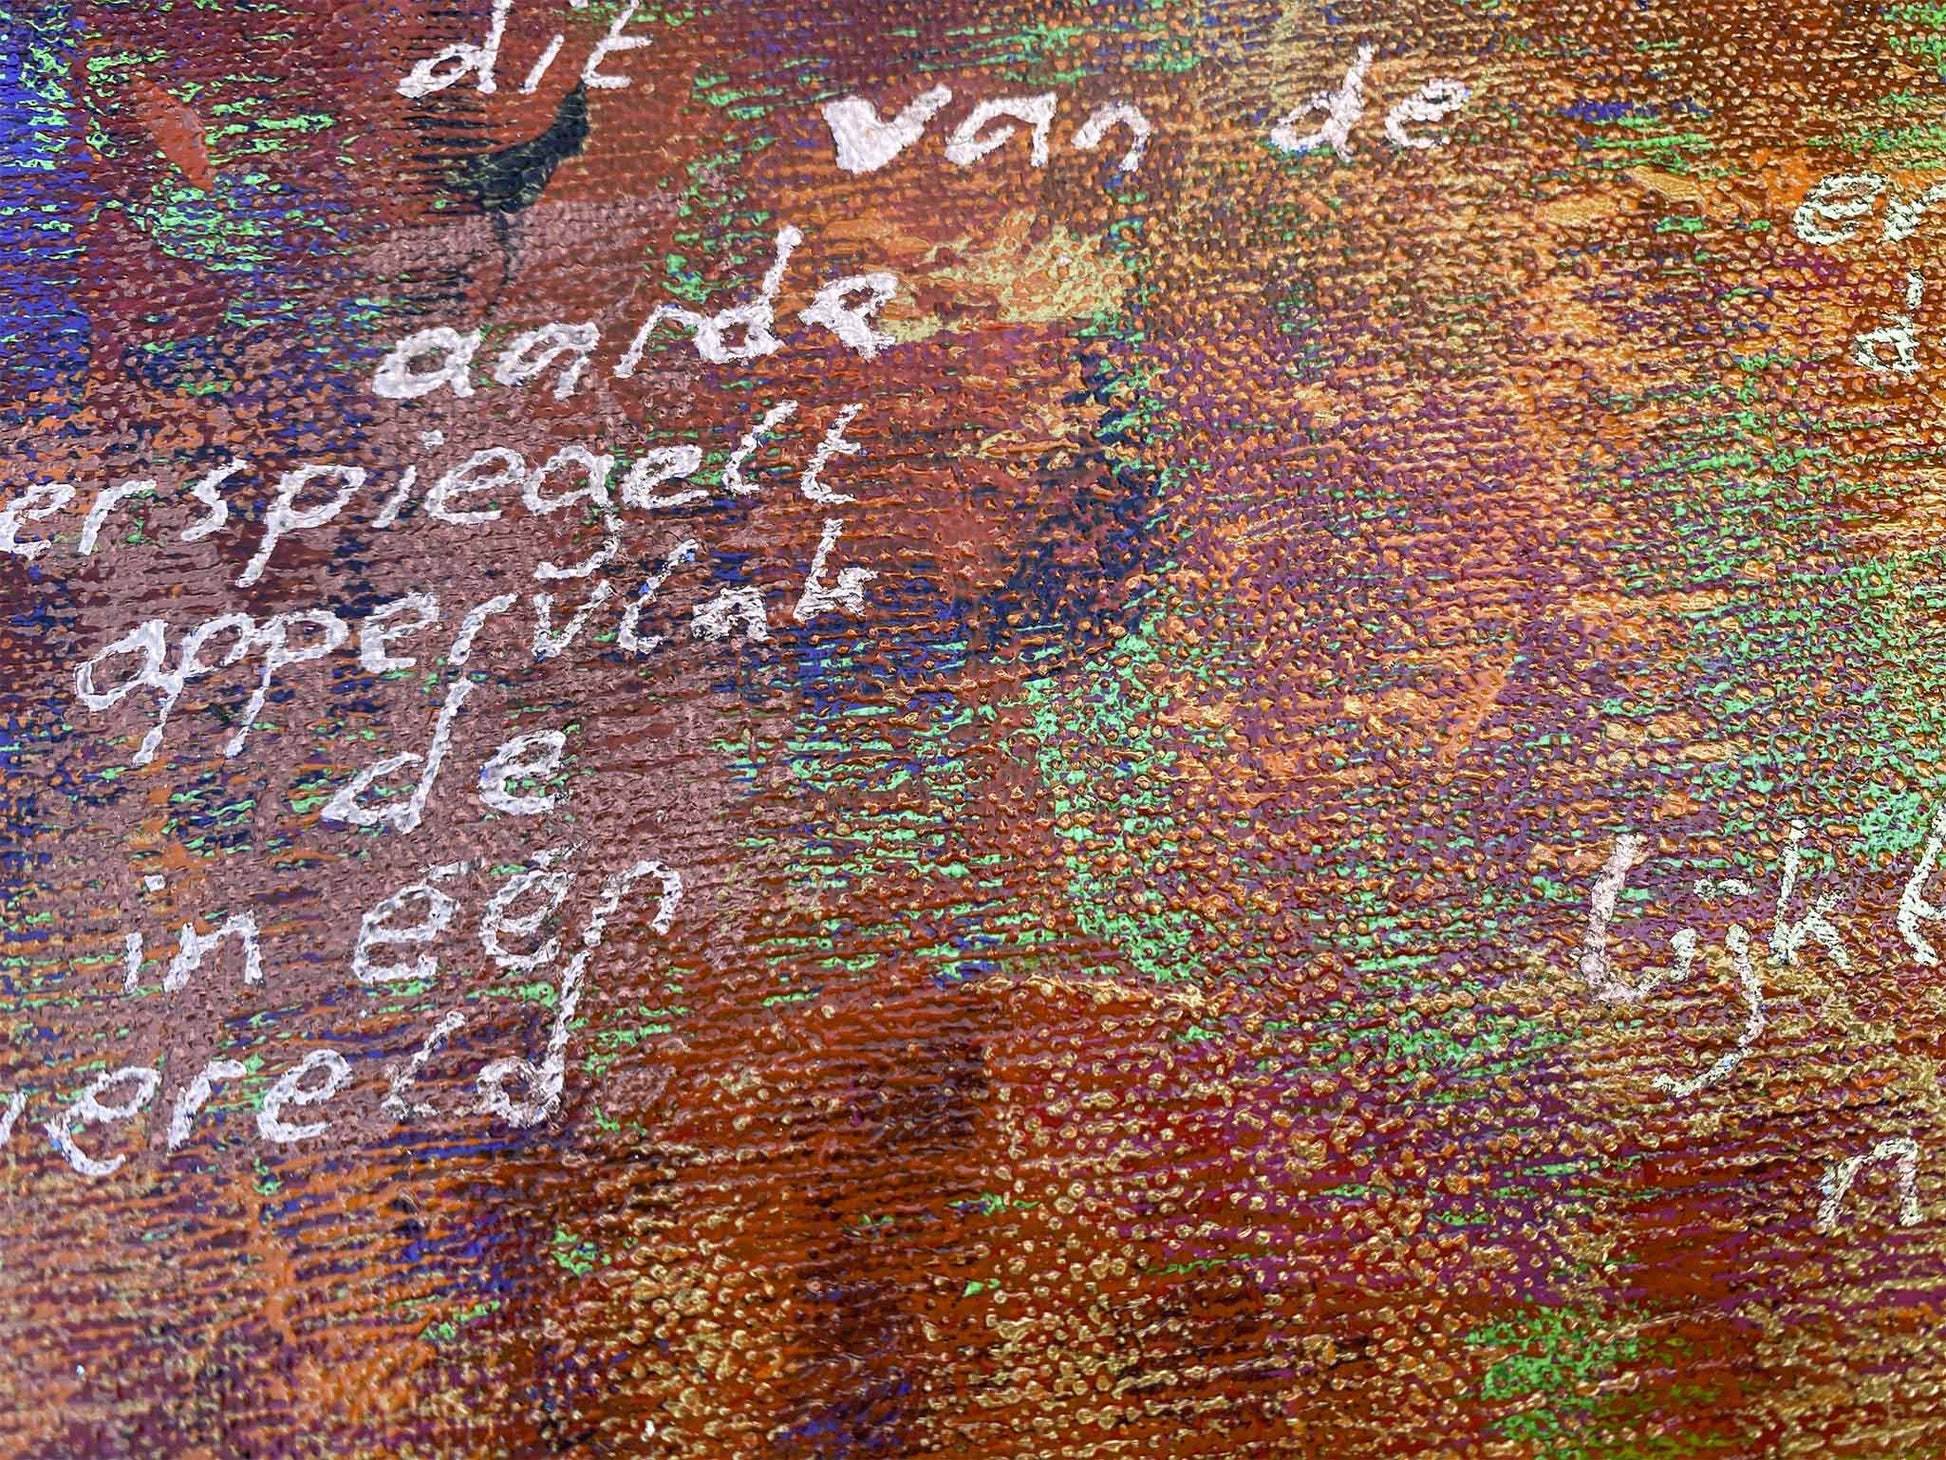 dit
van de
aarde
erspiegelt
oppervlak
de
in één
wereld
lijkt
n